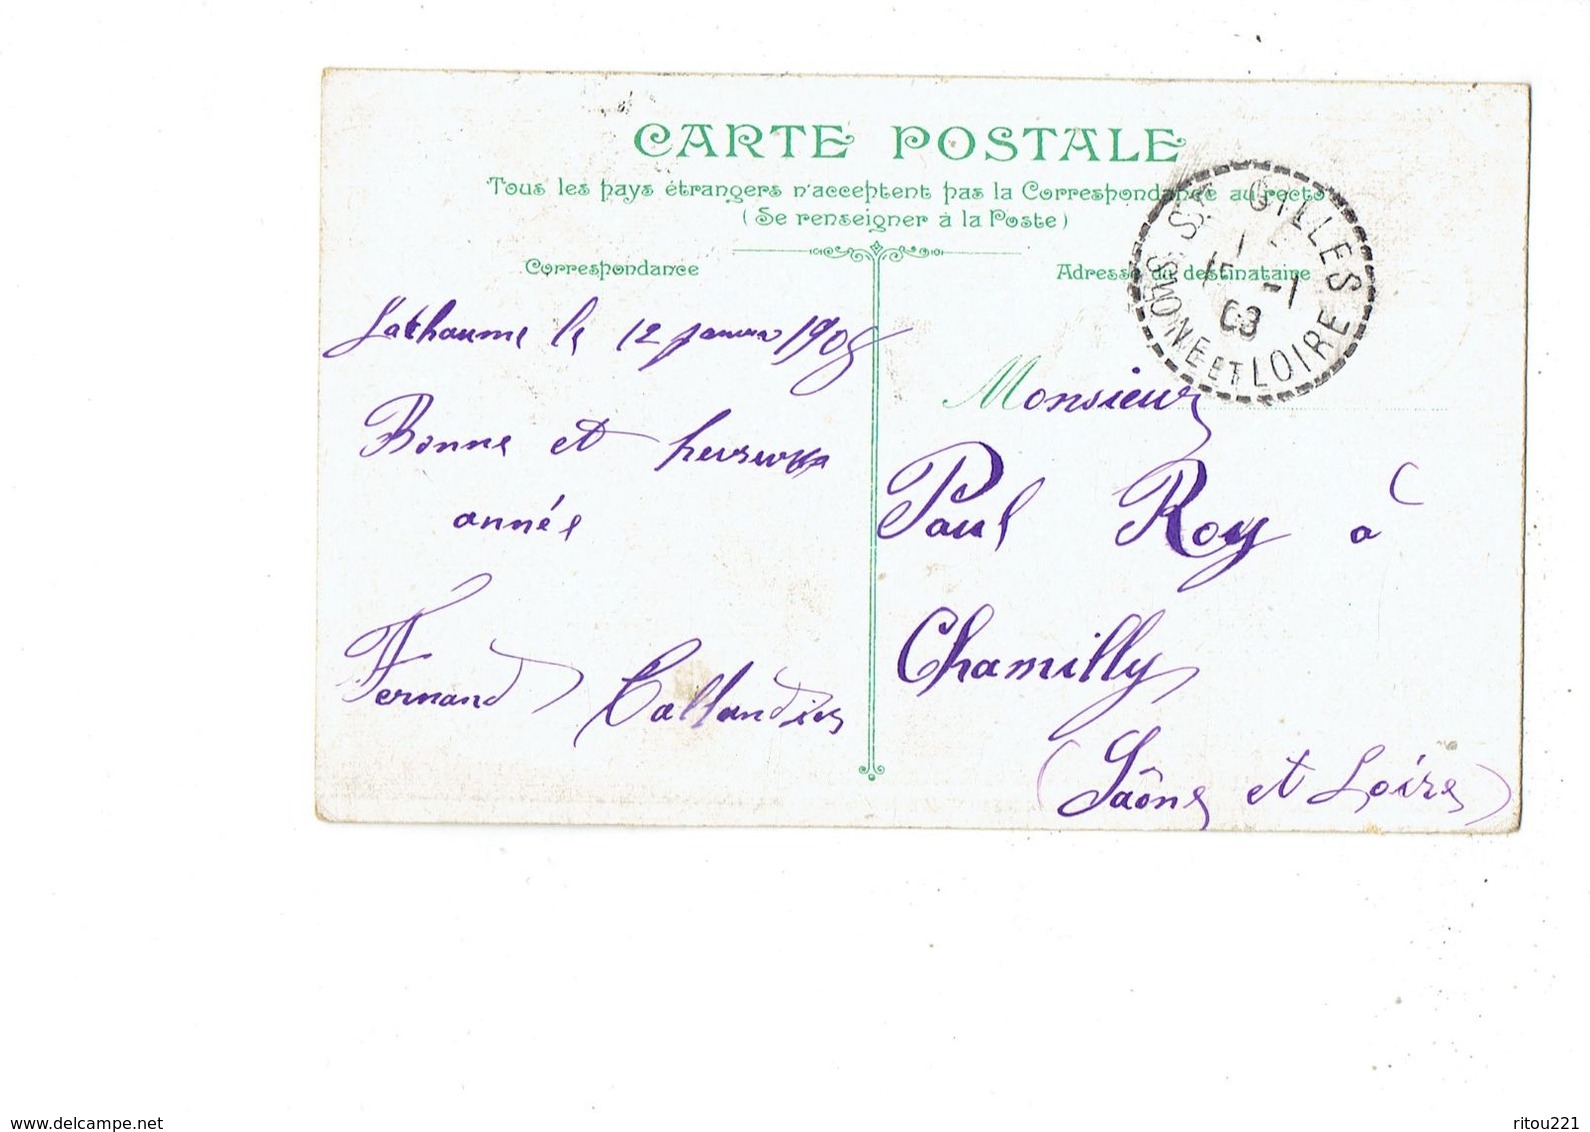 CARTE POSTALE
Tous les pays étrangers n'acceptent pas la Correspondance au recto
(Se renseigner à la Poste)
Correspondance
Adresse du destinataire
ST GILLES
15 -1
08
SAONE ET LOIRE
le 12 janvier 1908
Bonne et heureuse
année
Fernand
Monsieur
Paul Roy à
Chamilly
(Saône et Loire)
www.delcampe.net
ritou221